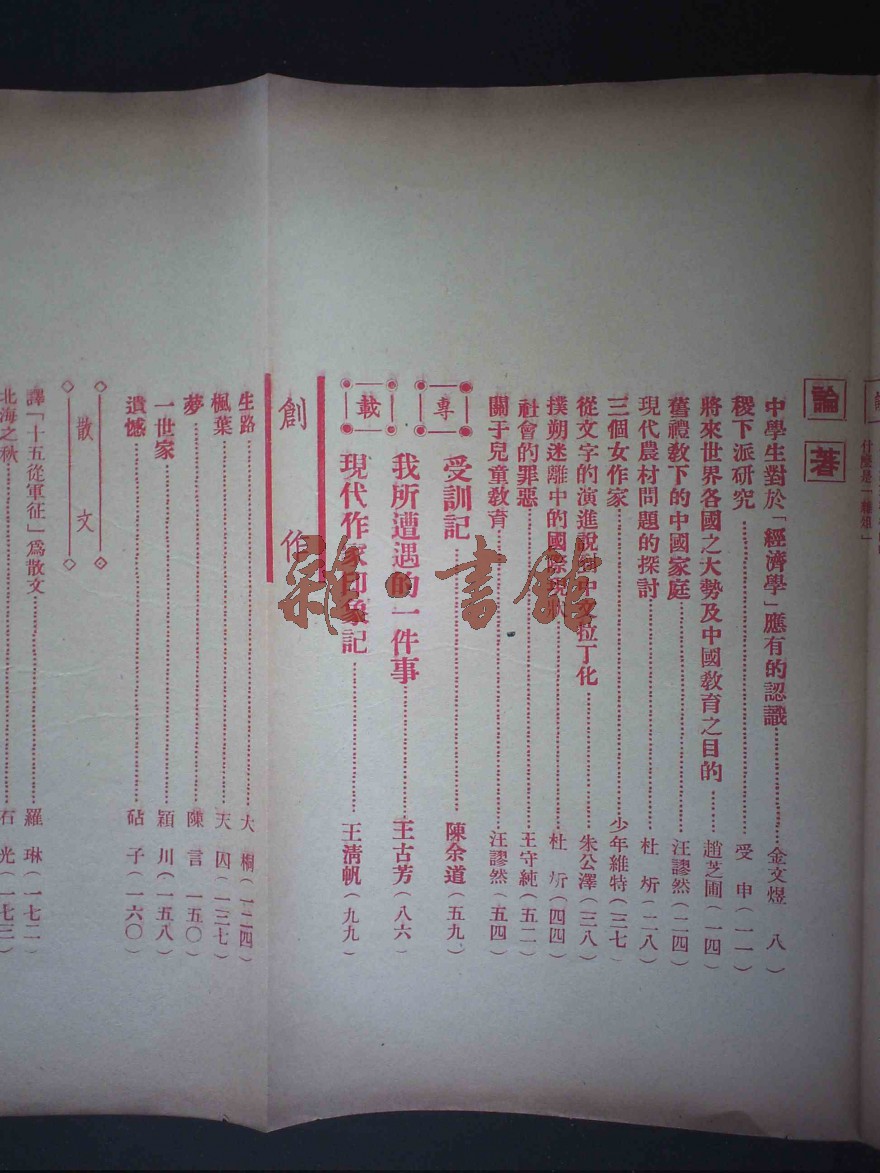 什麼是「雜俎」
論著
中學生對於「經濟學」應有的認識 金文煜 八)
稷下派研究 受申(一一)
將來世界各國之大勢及中國教育之目的 趙芝圃(一四)
舊禮教下的中國家庭 汪謬然(二四)
現代農村問題的探討 杜炘(二八)
三個女作家 少年維特(三七)
從文字的演進說到中文拉丁化 朱公澤(三八)
撲朔迷離中的國際現狀 杜炘(四四)
社會的罪惡 王守純(五二)
關于兒童教育 汪謬然(五四)
專載
受訓記 陳余道(五九)
我所遭遇的一件事 王古芳(八六)
現代作家印象記 王清帆(九九)
創作
生路 大桐(一二四)
楓葉 天囚(一三七)
夢 陳言(一五〇)
一世家 穎川(一五八)
遺憾 砧子(一六〇)
散文
譯「十五從軍征」爲散文 羅琳(一七二)
北海之秋 石光(一七三)
雜·書館